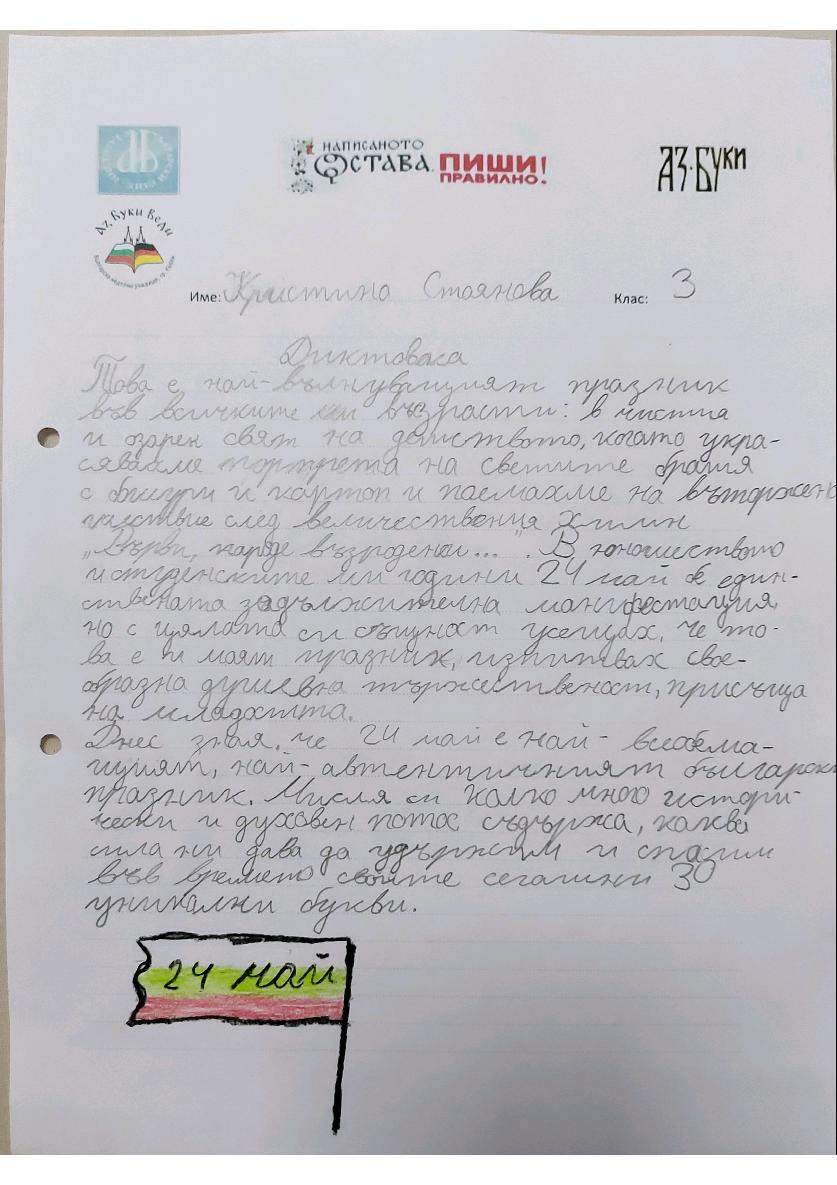 НАПИСАНОТО
ОСТАВА. ПИШИ
ПРАВИЛНО!
АЗ·БУКИ
Аз, Буки Веди
Име: Кристина Стоянова Клас: 3
Диктовка
Това е най-вълнуващият празник
във всичките ми възрасти: в чистия
и озарен свят на детството, когато укра-
сявахме портрета на светите братя
с бигри и картон и поемахме на въторжено
шествие след величествения химн
„Върви, народе възродени...". В юношеството
и студентските ми години 24 май бе един-
ствената задължителна манифестация,
но с цялата си същност усещах, че то-
ва е и моят празник, изпитвах свое-
образна душевна тържественост, присъща
на младостта.
Днес зная, че 24 май е най-всеобема-
щият, най-автентичният български
празник. Мисля си колко много истори-
чески и духовен потос съдържа, каква
сила ни дава да удържим и спасим
във времето своите сегашни 30
уникални букви.
24 май